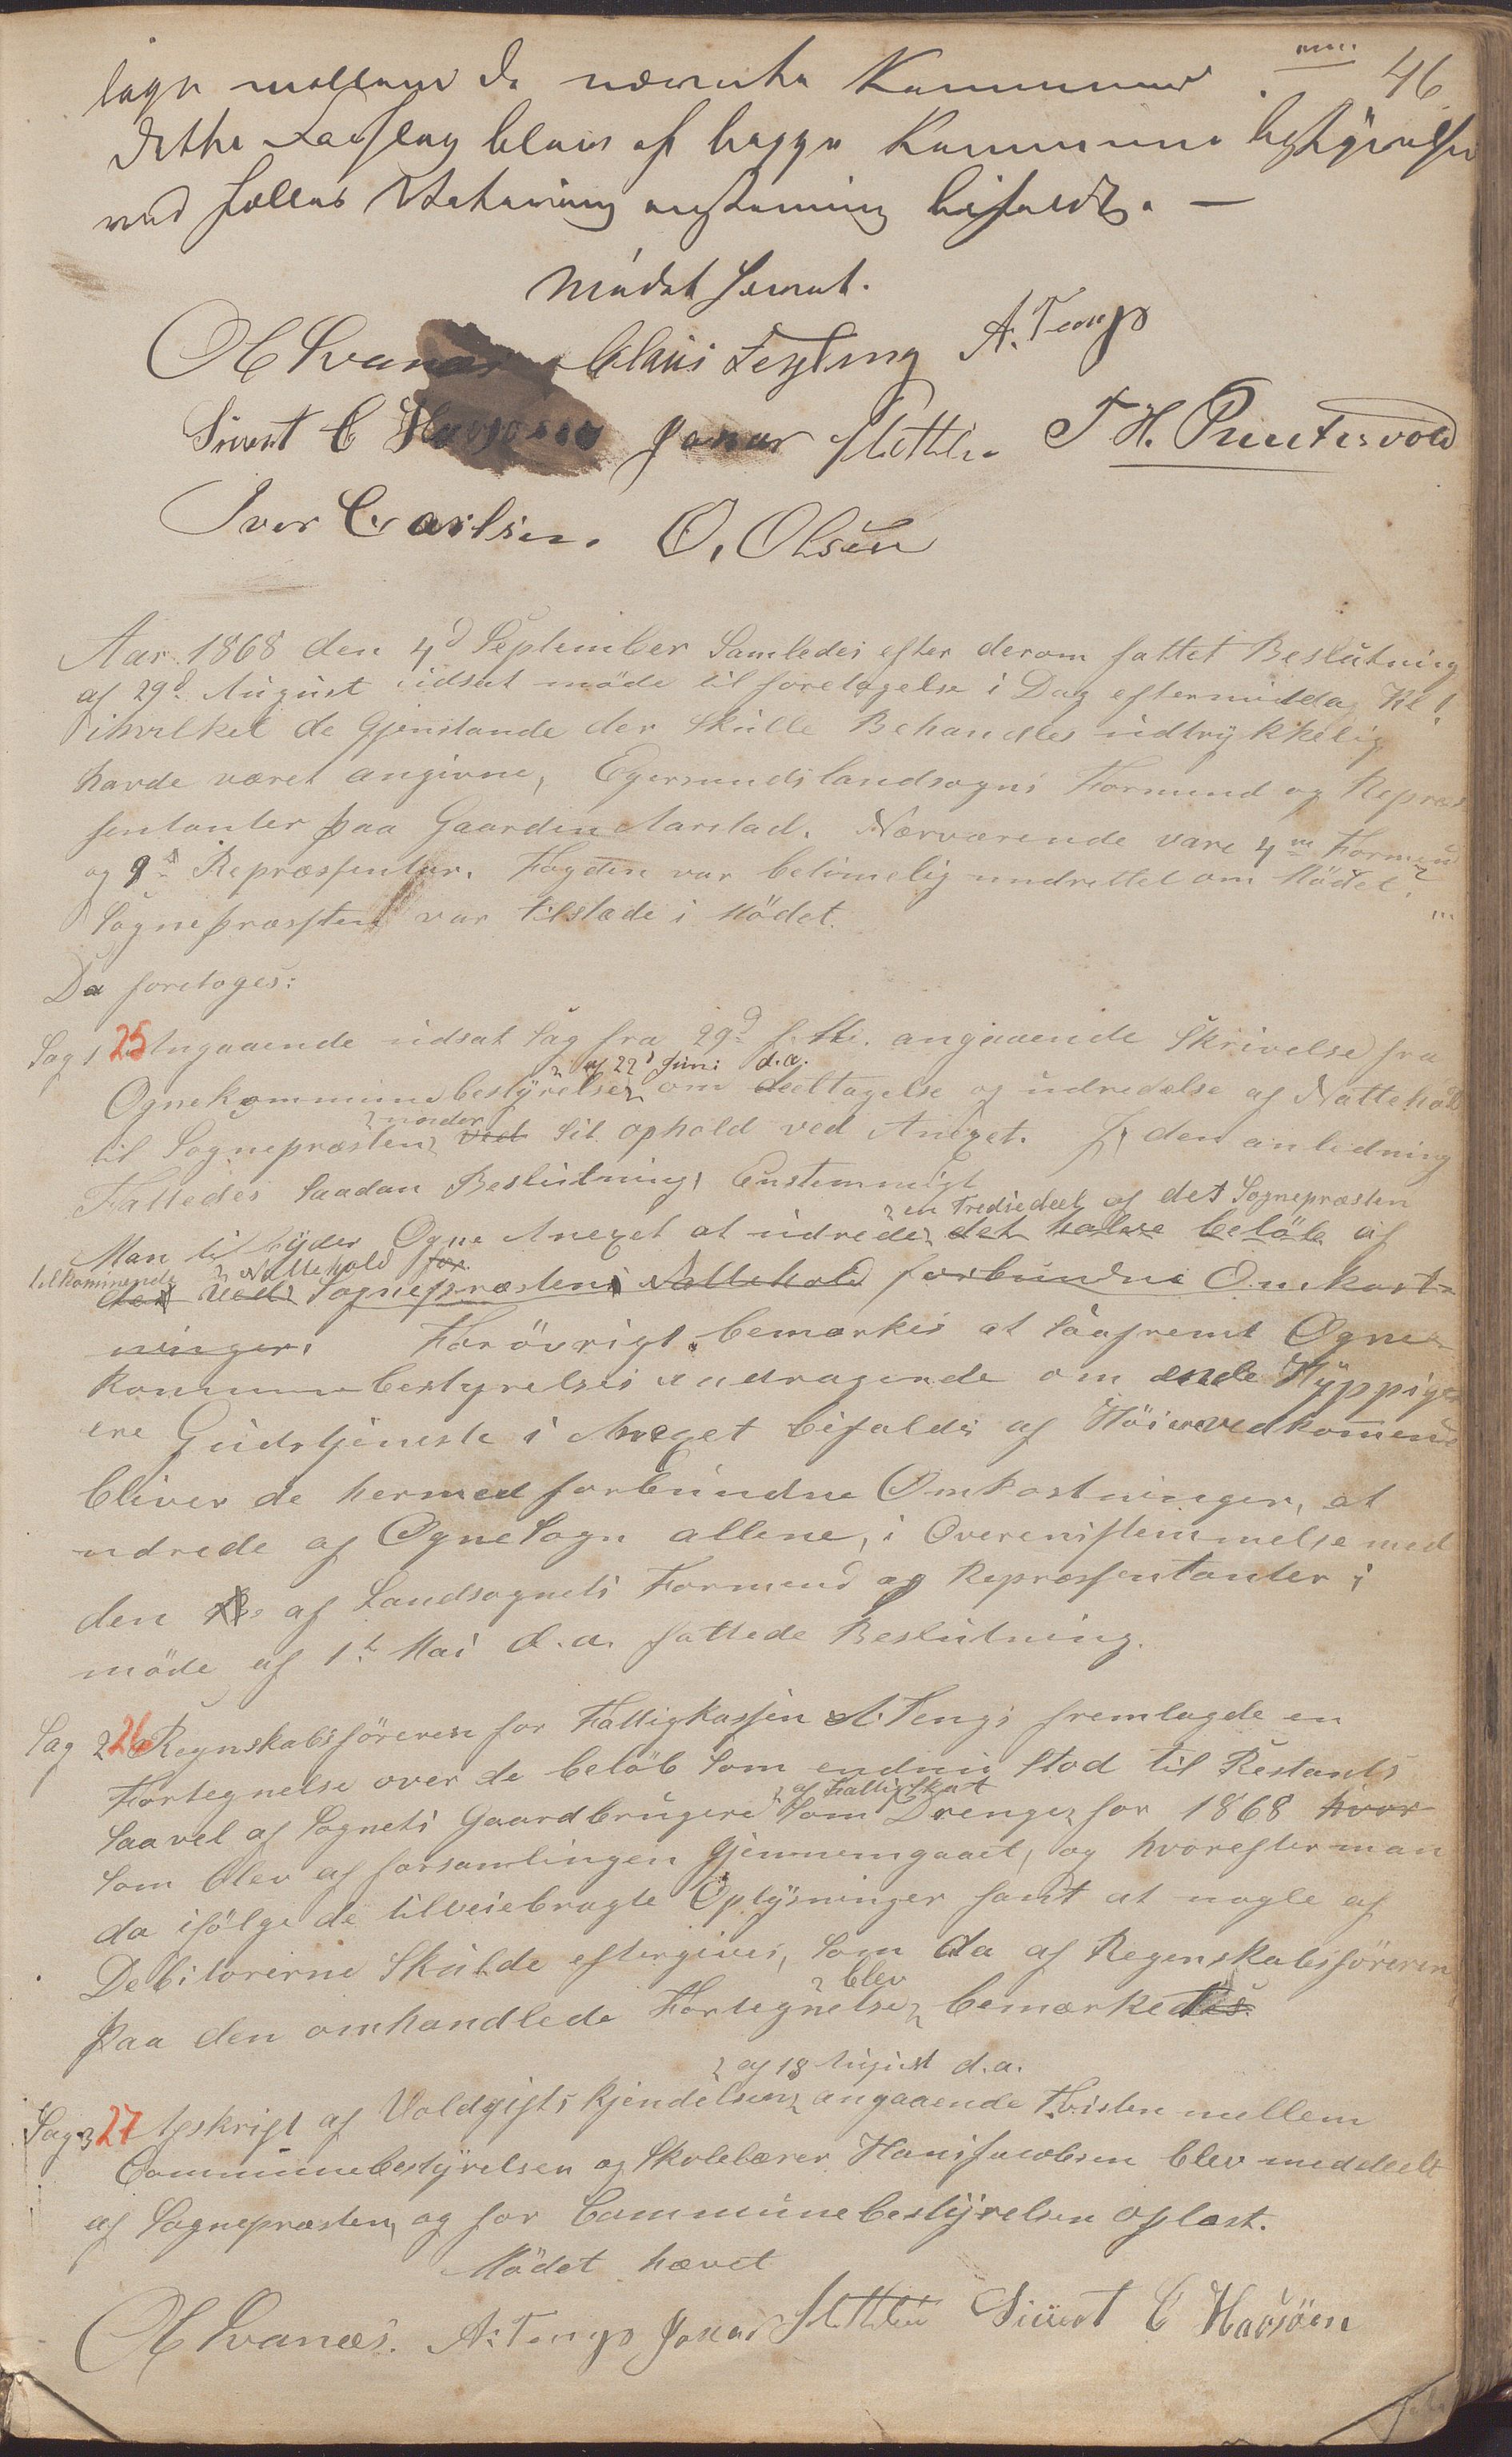 46
lagn mellem de nævnte Kommuner.
dette Forslag blev af begge Kommune bestyrelser
ved fælles Votering enstemmig bifaldt. —
Mødet hævet.
O H Svanæs Claus Feyling A. Tengs
Sivert C Havsøen Jonas Slettebø T H. Puntervold
Iver Carlsen. O. Olsen
Aar 1868 den 4d September Samledes efter derom fattet Beslutning
af 29d August udsat møde til foretagelse i Dag eftermiddag Kl
ihvilket de Gjenstande der Skulle Behandles udtrykkelig
havde været angivne, Egersunds landsogns Formænd og Repræ
sentanter paa Gaarden Aarstad. Nærværende vare 4re Formænd
og 9 Repræssentar. Fogden var betimelig undrettet om Mødet.
Sognepræsten var tilstæde i Mødet.
Da foretoges:
Sag 1 25 Angaaende udsat Sag fra 29d f. M. angaaende Skrivelse fra
af 22d Juni d.a.
Ognekommunebestyrelse om deeltagelse og udredelse af Nattehold
under
til Sognepræsten ved Sit ophold ved Anexet. I den anledning
Fattedes Saadan Beslutning, Enstemmigt
en Trediedeel af det Sognepræsten
Man tilbyder Ogne Anexet at udrede det halve beløb af
tilkommende Nattehold for
det ved Sognepræstens Nattehold forbundne Omkost-
ninger. Forøvrigt bemærkes at saafremt Ogne
kommunebestyrelses andragende om ende Hyppig
ere Gudstjeneste i Anexet bifaldes af Høierevedkommende
bliver de hermed forbundne Omkostninger, at
udrede af Ogne Sogn allene, i Overensstemmelse med
den af Landsognets Formænd og Repræssentanter i
møde af 1t Mai d.a. fattede Beslutning.
Sag 2 26 Regnskabsføreren for Fattigkassen A. Tengs fremlagde en
Fortegnelse over de beløb Som endnu Stod til Restants
af Fattigskat
Saavel af Sognets Gaardbrugere Som Drenge for 1868 hvor
Som blev af forsamlingen gjennemgaaet, og hvorefter man
da ifølge de tilveiebragte Oplysninger fant at nogle af
Debitorerne Skulde eftergives, Som da af Regenskabsføreren
blev
paa den omhandlede Fortegnelse bemærkedes
af 18 August d.a.
Sag 3 27 Afskrift af Voldgifts Kjendelsen angaaende Tvisten mellem
Communebestyrelsen og Skolelærer Hans Jacobsen blev meddeelt
af Sognepræsten, og for Communebestyrelsen oplæst.
Mødet hævet
O H Svanæs. A. Tengs Jonas Slettebø Sivert C Havsøen